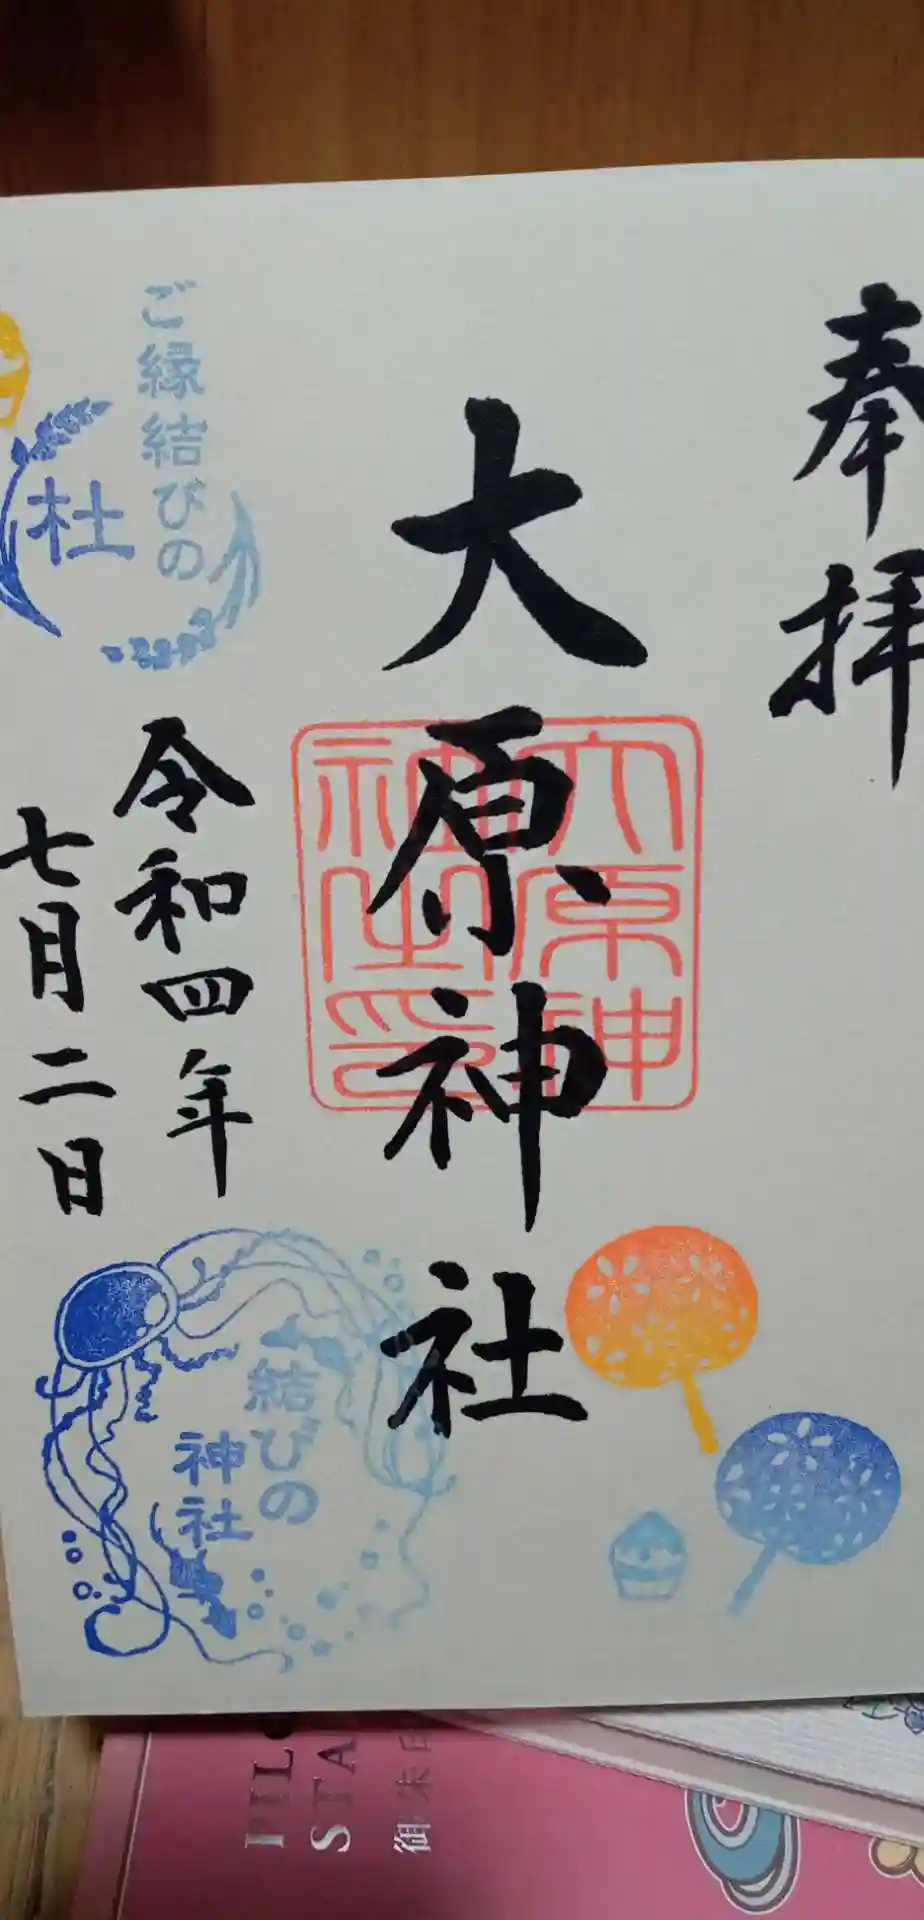 奉拝
大原神社
大原神社之印
令和四年
七月二日
ご縁結びの
杜
結びの
神社